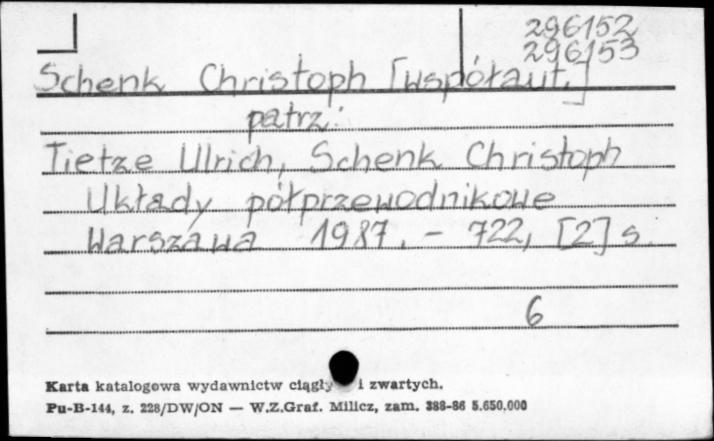 296152
296153
Schenk Christoph [współaut.]
patrz:
Tietze Ulrich, Schenk Christoph
Układy półprzewodnikowe
Warszawa 1987. – 722, [2] s.
6
Karta katalogowa wydawnictw ciągły i zwartych.
Pu-B-144, z. 228/DW/ON — W.Z.Graf. Milicz, zam. 388-86 5.650,000